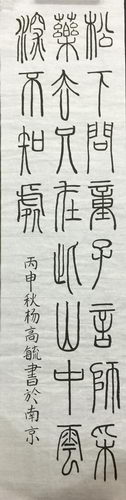 松下問童子言師采
藥去只在此山中雲
深不知處
丙申秋杨高毓書於南京